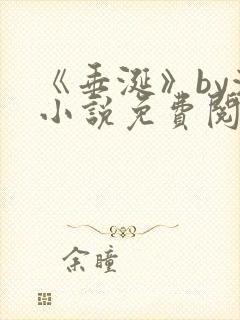 《垂涎》by
小說免費閱
余瞳